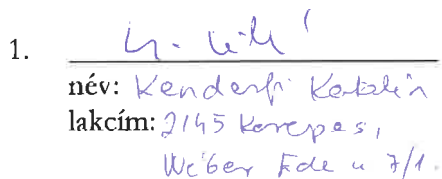 1.
név: Kenderfi Katalin
lakcím: 2145 Kerepes,
Wéber Ede u 7/1.